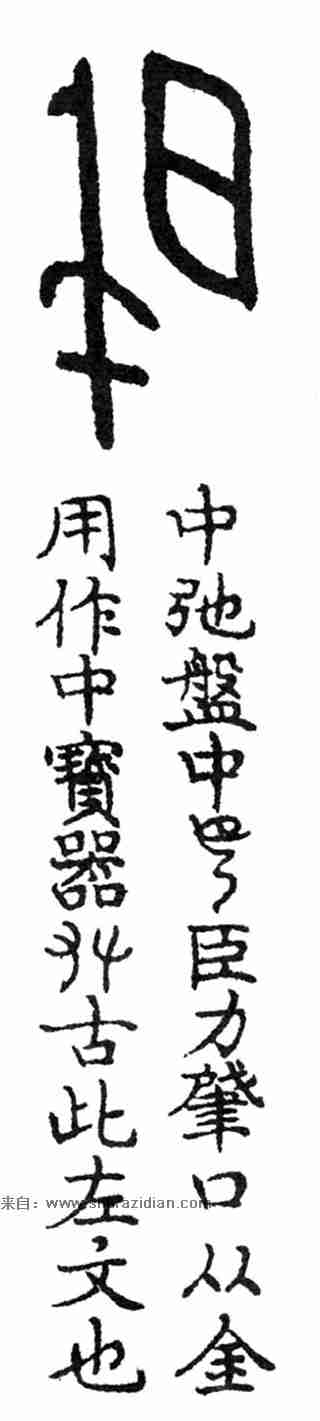 中弛盤中臣力肇口从金
用作中寶器古此左文也
来自：www.shufazidian.com